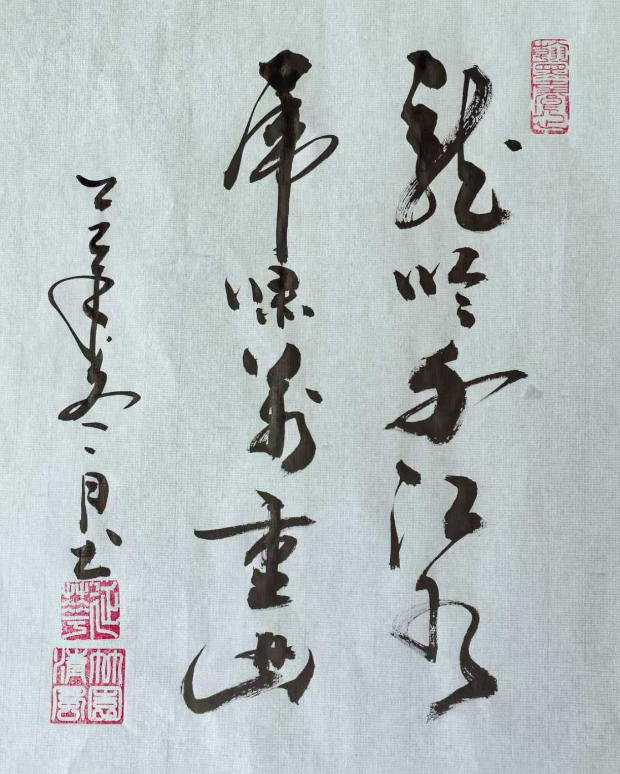 龍吟千江水
虎嘯萬重山
二月書